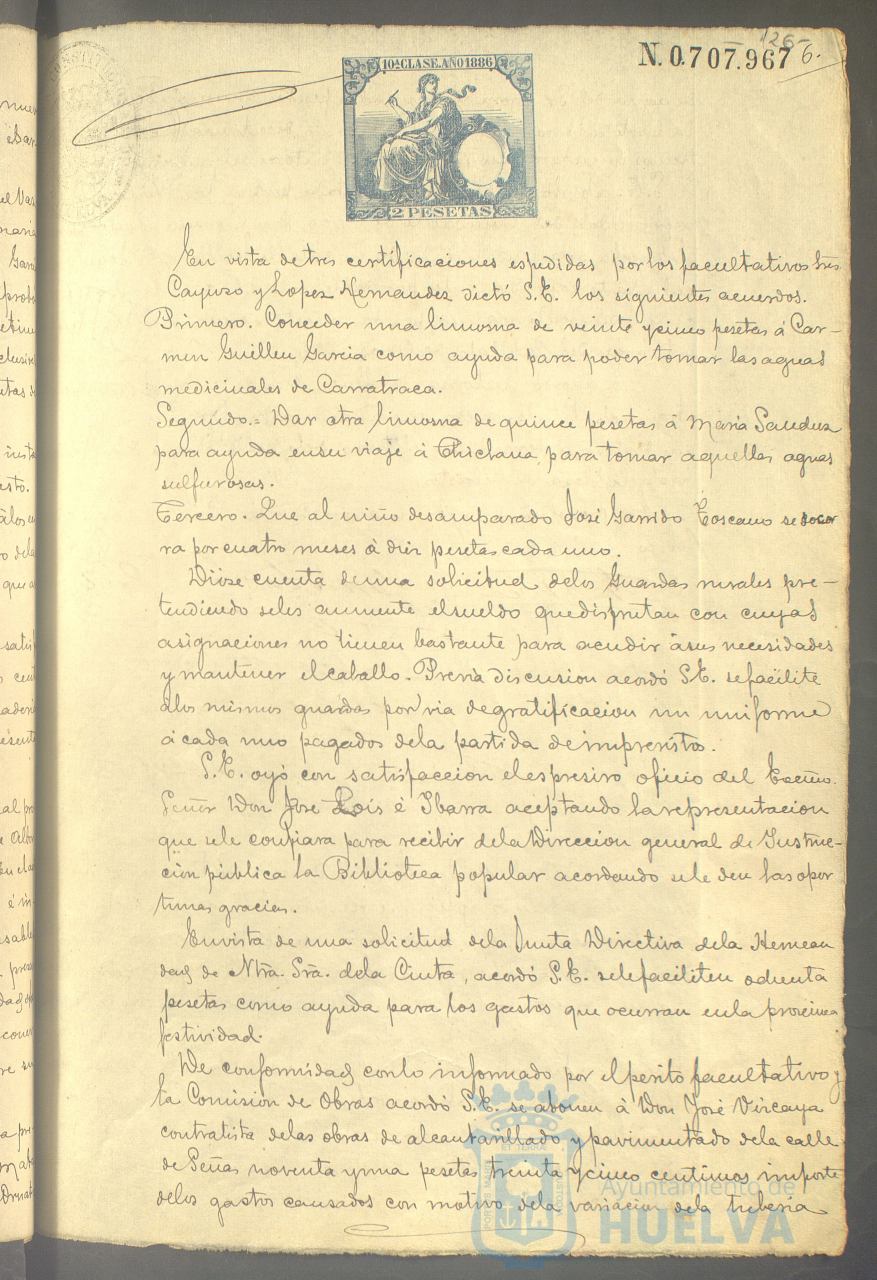 126
N. 0.707.967
6.
10ª CLASE. AÑO 1886
2 PESETAS
En vista de tres certificaciones espedidas por los facultativos Sres
Cayuso y Lopez Hernandez dictó S.E. los siguientes acuerdos.
Primero. Conceder una limosna de veinte y cinco pesetas á Car-
men Guillen Garcia como ayuda para poder tomar las aguas
medicinales de Carratraca.
Segundo.= Dar otra limosna de quince pesetas á Maria
para ayuda en su viaje á Chiclana, para tomar aquellas aguas
sulfurosas.
Tercero. Que al niño desamparado José Garrido Toscano se socor
ra por cuatro meses á diez pesetas cada uno.
Dióse cuenta de una solicitud de los Guardas rurales pre-
tendiendo seles aumente el sueldo que disfrutan con cuyas
asignaciones no tienen bastante para acudir á sus necesidades
y mantener el caballo. Previa discusion acordó S.E. se facilite
á los mismos guardas por via de gratificacion un uniforme
á cada uno pagados de la partida de imprevistos.
S.E. oyó con satisfaccion el espresivo oficio del Excmo.
Señor Don José Lois é Ibarra aceptando la representacion
que se le confiara para recibir de la Direccion general de Instruc-
cion pública la Biblioteca popular acordando se le den las opor
tunas gracias.
En vista de una solicitud de la Junta Directiva de la Herman
dad de Ntra. Sra. de la Cinta, acordó S.E. se le faciliten ochenta
pesetas como ayuda para los gastos que ocurran en la proxima
festividad.
De conformidad con lo informado por el perito facultativo y
la Comision de Obras acordó S.E. se abonen á Don José Vizcaya
contratista de las obras de alcantarillado y pavimentado de la calle
de Peñas noventa y una pesetas treinta y cinco centimos importe
de los gastos causados con motivo de la variacion de la tuberia
Ayuntamiento de
HUELVA